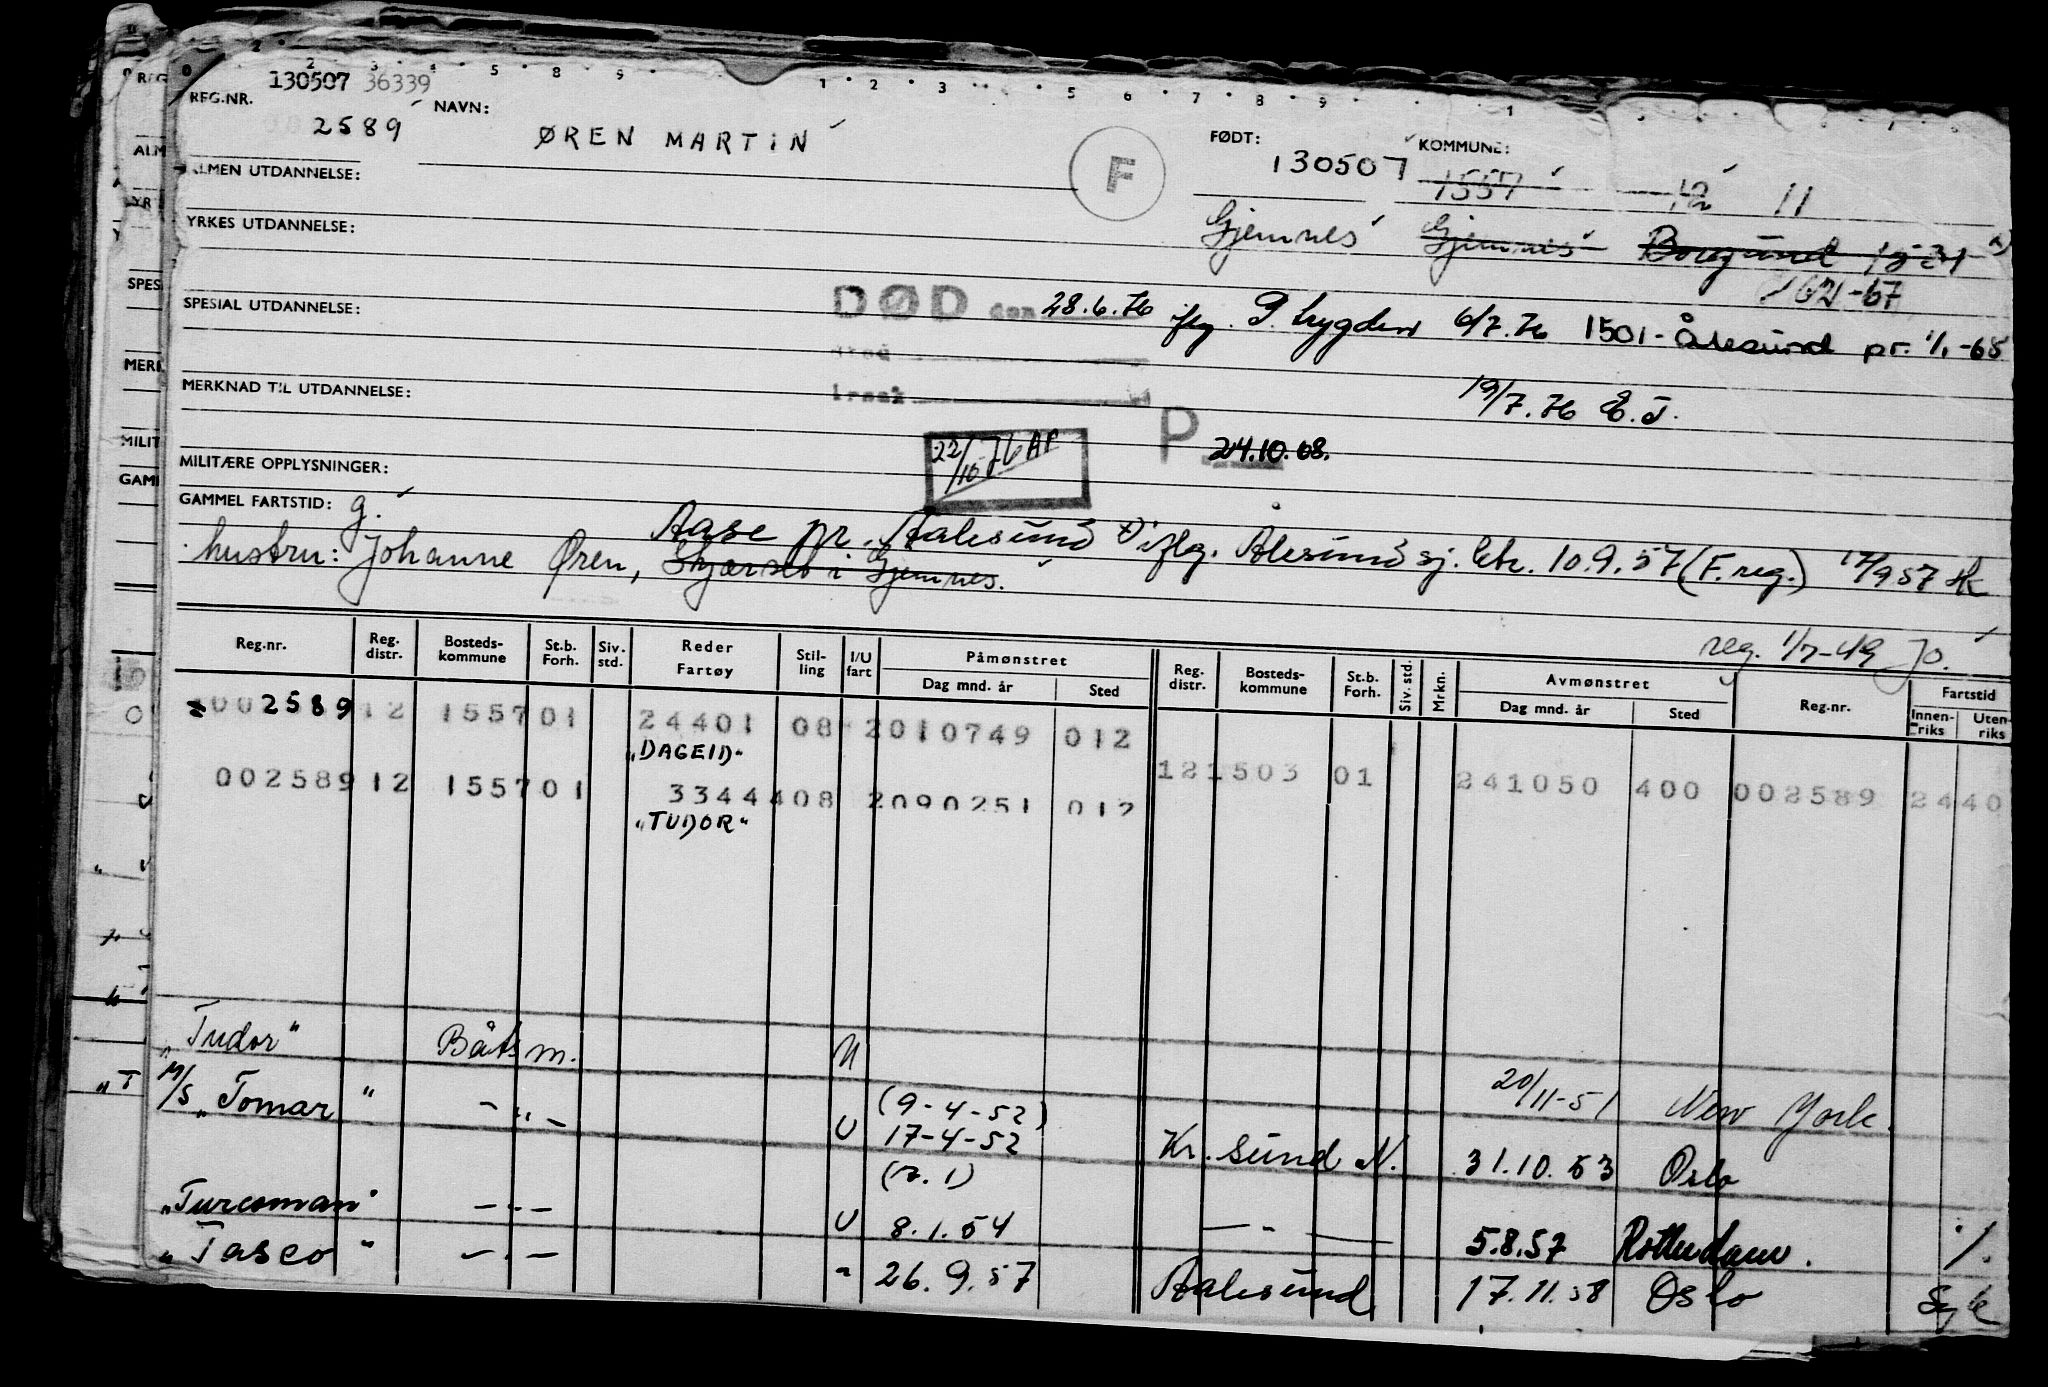 REG.NR. 130507 36339
2589
NAVN: ØREN MARTIN
F
FØDT: 130507
KOMMUNE: 1557 12 11
ALMEN UTDANNELSE:
Gjemnes Gjemnes Borgund 1531
YRKES UTDANNELSE:
SPESIAL UTDANNELSE:
DØD den 28.6.76 iflg. P. trygden 6/7.76 1501-Ålesund pr. 1/1-68
sted
årsak
19/7.76 E.J.
MERKNAD TIL UTDANNELSE:
22/10-76 AP
P 24.10.68.
MILITÆRE OPPLYSNINGER:
GAMMEL FARTSTID: g.
Aase pr. Aalesund iflg. Alesund sj. ktr. 10.9.57 (F.reg.) 17/9 57
hustru: Johanne Øren, Gjemnes.
reg. 1/7-49 Jo.
Reg.nr. Reg. distr. Bosteds-kommune St.b. Forh. Siv. std. Reder Fartøy Stil-ling I/U fart Påmønstret Dag mnd. år Sted Reg. distr. Bosteds-kommune St.b. Forh. Siv. std. Mrkn. Avmønstret Dag mnd. år Sted Reg.nr. Fartstid Innen-riks Uten-riks
002589 12 1557 01 24401 08 2010749 012
"DAGEID"
121503 01 241050 400 002589 2440
002589 12 1557 01 33444 08 2090251 012
"TUDOR"
"Tudor" Båtsm. U 20/11-51 New York.
M/S "Tomar" - " - U (9-4-52)
17-4-52 Kr. sund N. 31.10.53 Oslo
"Turcoman" - " - U 8.1.54 - " - 5.8.57 Rotterdam. ./.
"Tasco" - " - " 26.9.57 Aalesund 17.11.58 Oslo Syk